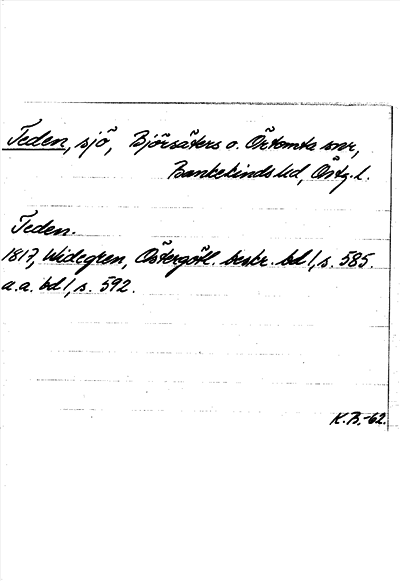 Teden, sjö, Björsäters o. Örtomta snr,
Bankekinds hd, Östg. l.
Teden.
1817, Widegren, Östergötl. beskr. bd 1, s. 585.
a.a. bd 1, s. 592.
K.B.-62.